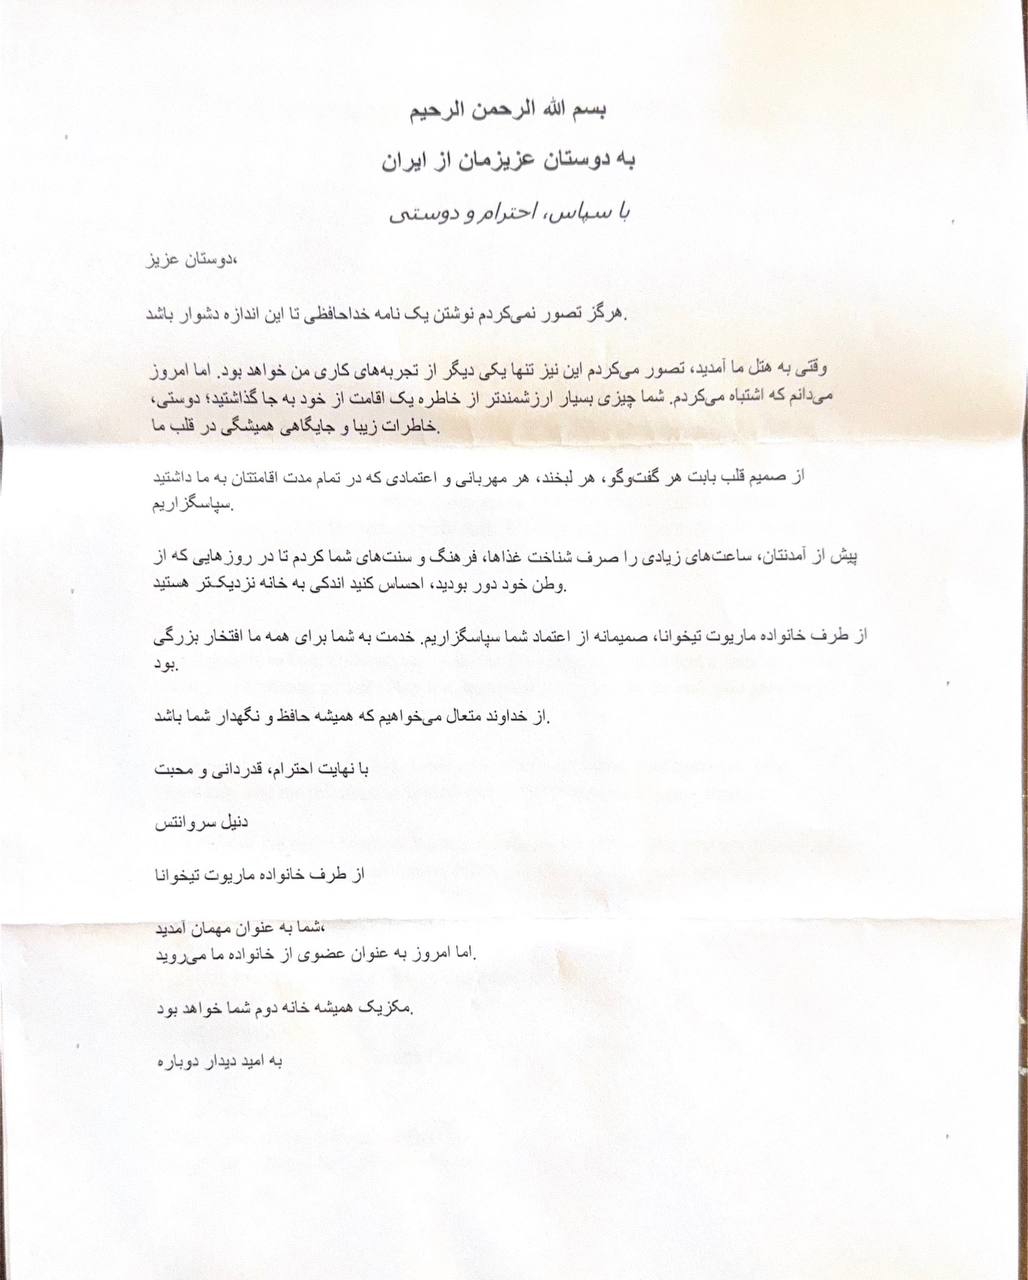 بسم الله الرحمن الرحیم
به دوستان عزیزمان از ایران
با سپاس، احترام و دوستی
دوستان عزیز،
هرگز تصور نمی‌کردم نوشتن یک نامه خداحافظی تا این اندازه دشوار باشد.
وقتی به هتل ما آمدید، تصور می‌کردم این نیز تنها یکی دیگر از تجربه‌های کاری من خواهد بود. اما امروز
می‌دانم که اشتباه می‌کردم. شما چیزی بسیار ارزشمندتر از خاطره یک اقامت از خود به جا گذاشتید؛ دوستی،
خاطرات زیبا و جایگاهی همیشگی در قلب ما.
از صمیم قلب بابت هر گفت‌وگو، هر لبخند، هر مهربانی و اعتمادی که در تمام مدت اقامتتان به ما داشتید
سپاسگزاریم.
پیش از آمدنتان، ساعت‌های زیادی را صرف شناخت غذاها، فرهنگ و سنت‌های شما کردم تا در روزهایی که از
وطن خود دور بودید، احساس کنید اندکی به خانه نزدیک‌تر هستید.
از طرف خانواده ماریوت تیخوانا، صمیمانه از اعتماد شما سپاسگزاریم. خدمت به شما برای همه ما افتخار بزرگی
بود.
از خداوند متعال می‌خواهیم که همیشه حافظ و نگهدار شما باشد.
با نهایت احترام، قدردانی و محبت
دنیل سروانتس
از طرف خانواده ماریوت تیخوانا
شما به عنوان مهمان آمدید،
اما امروز به عنوان عضوی از خانواده ما می‌روید.
مکزیک همیشه خانه دوم شما خواهد بود.
به امید دیدار دوباره